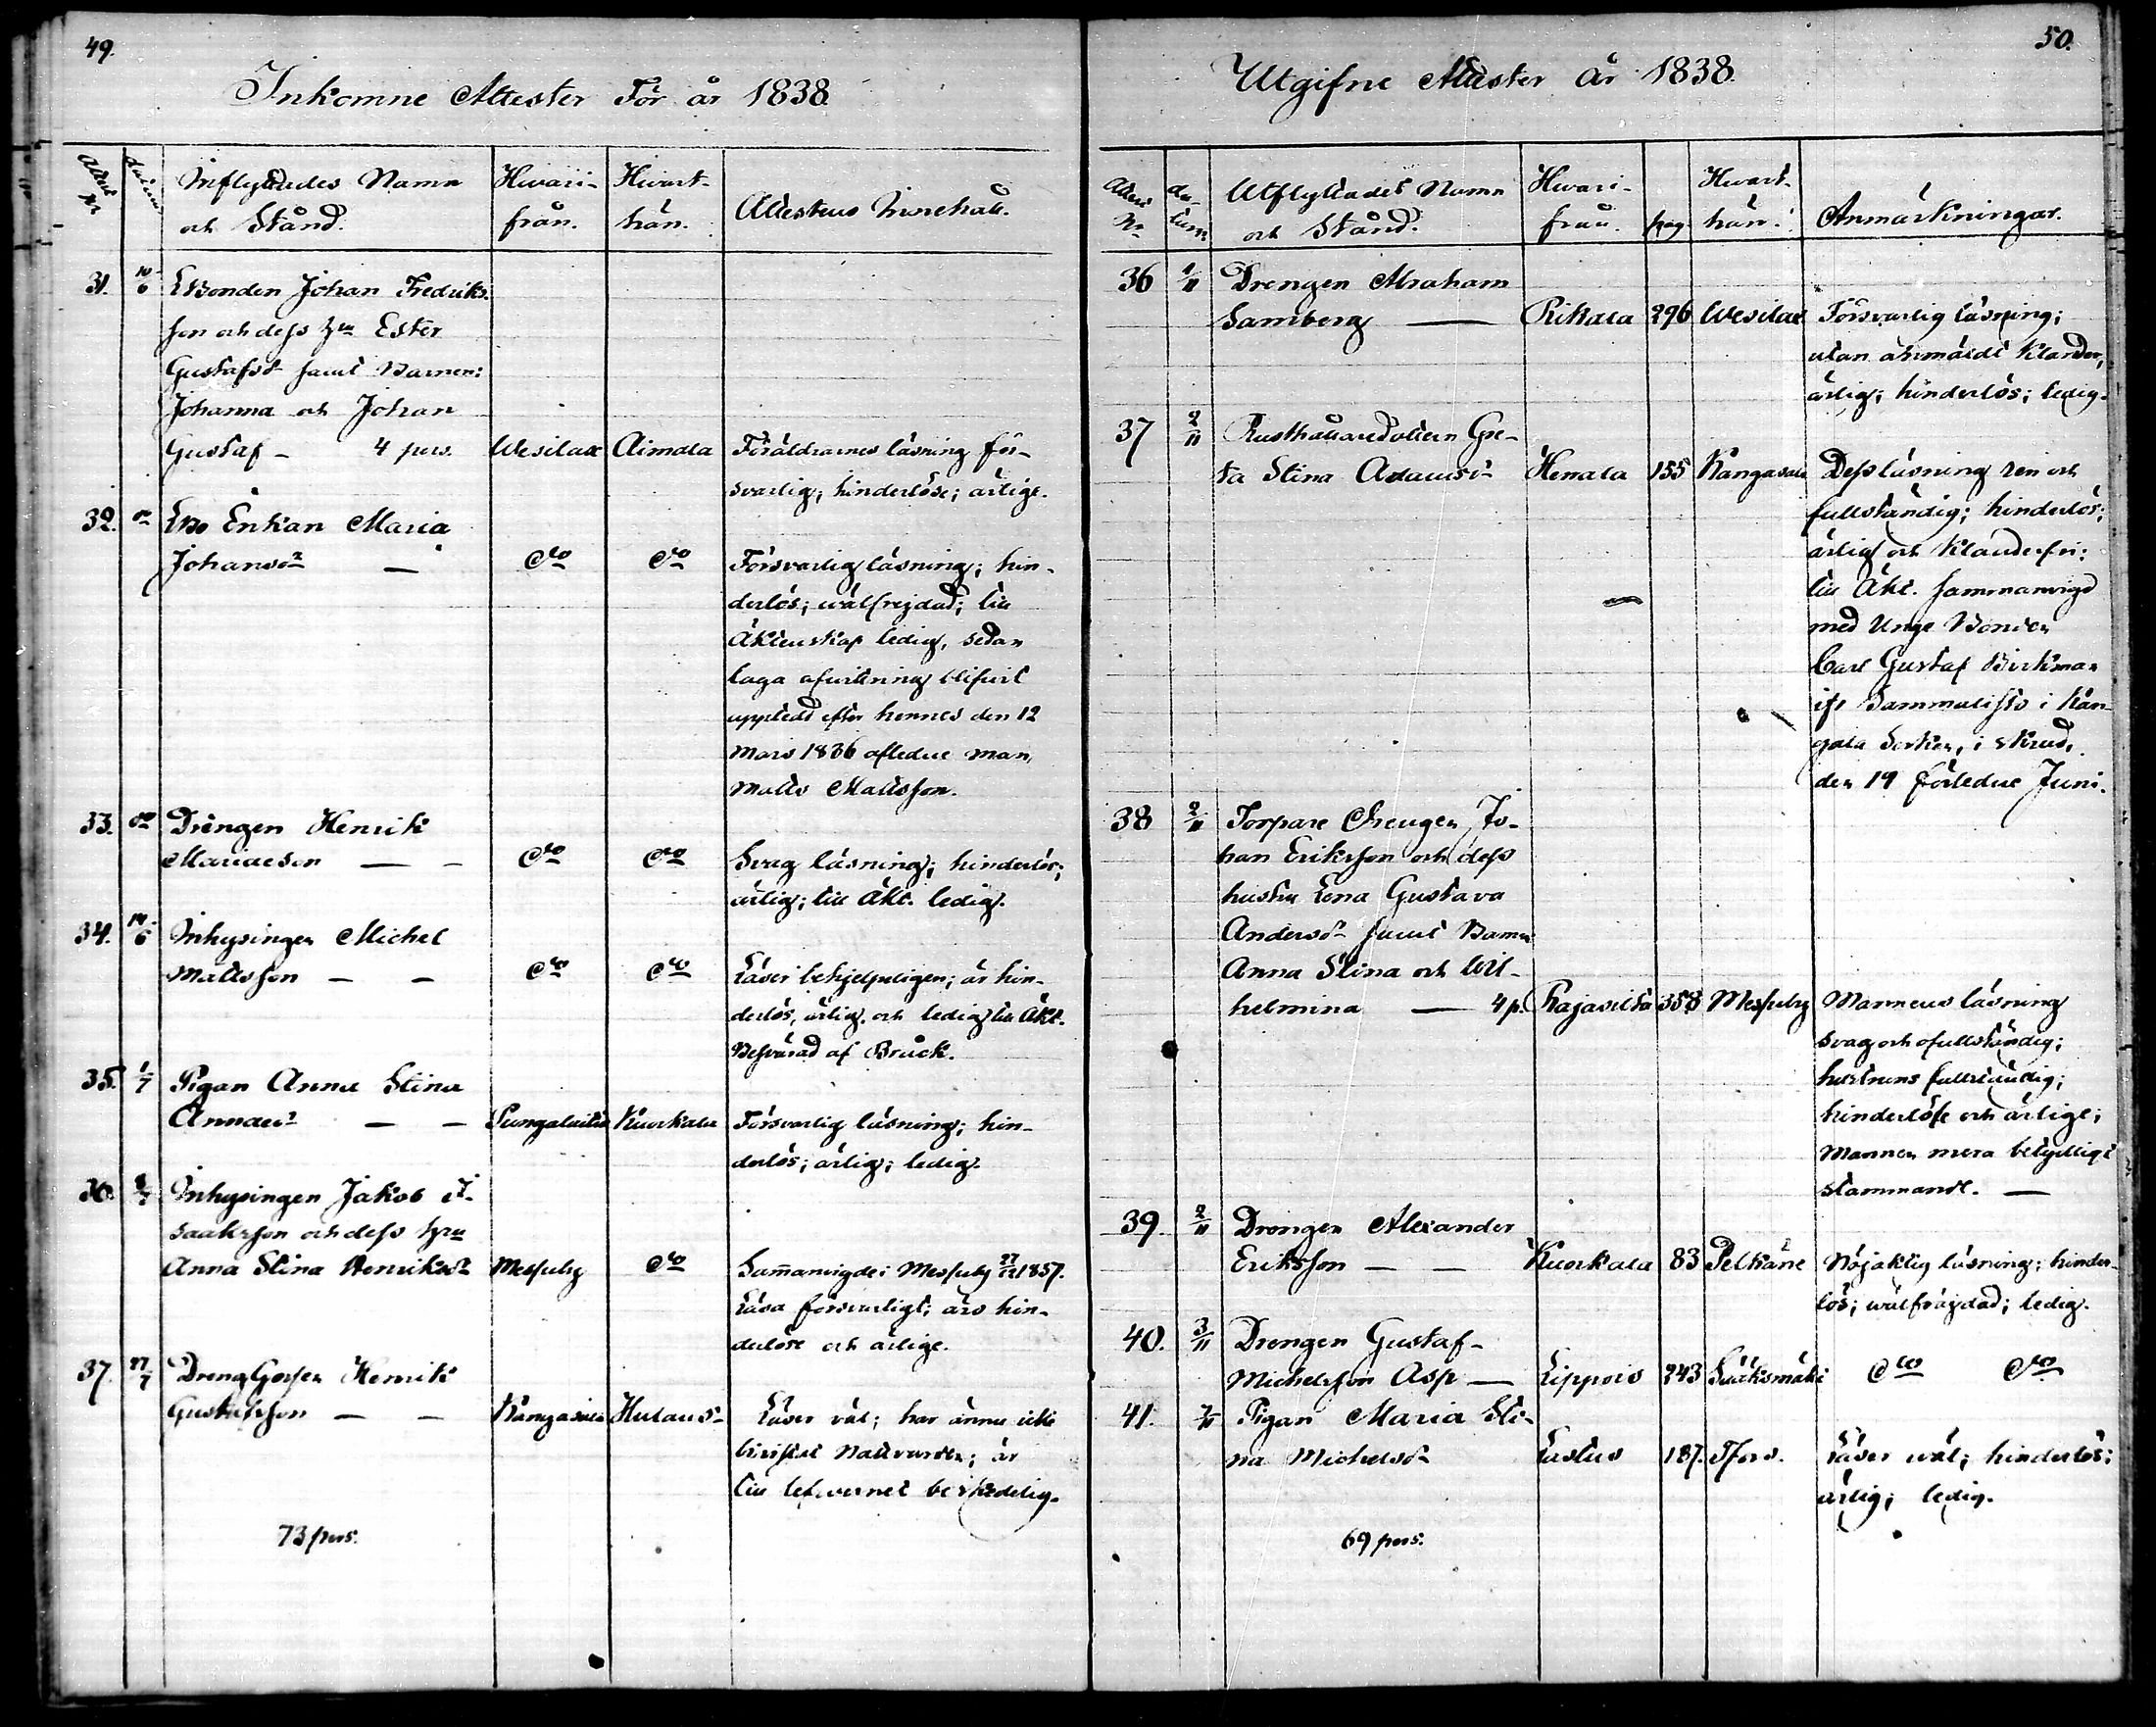 49.
Inkomne Attester För år 1838.
Attest nr
datum
Inflyttades Namn
och Stånd.
Hwari-
från.
Hwart-
hän.
Attestens Innehåll.
31. 10/6 Bonden Johan Fredriks-
son och dess hu Ester
Gustafsdr samt Barnen:
Johanna och Johan
Gustaf - 4 pers. Wesilax Aimala Föräldrarnes läsning för-
svarlig; hinderlöse; ärlige.
32. Enkan Maria
Johansdr — dto dto Försvarlig läsning; hin-
derlös; wälfrejdad; till
Äktenskap ledig, sedan
laga afwittring blifvit
upprättad efter hennes den 12
Mars 1836 afledne man,
Matts Mattsson.
33. do Drängen Henrik
Mariaeson — - dto dto Svag läsning; hinderlös;
ärlig; till Äkt. ledig.
34. 14/6 Inhysingen Michel
Mattsson — — dto dto Läser behjelpeligen; är hin-
derlös, ärlig och ledig till Äkt.
Besvärad af Bråck.
35. 1/7 Pigan Anna Stina
Annaedr — — Sungalaitis Kuorkala Försvarlig läsning; hin-
derlös; ärlig; ledig.
36. Inhysingen Jakob I-
saaksson och dess hru
Anna Stina Henriksdr Messuby dto Sammanvigde i Messuby 27/12 1837.
Läsa försvarligt; äro hin-
derlöse och ärlige.
37. 27/7 Dreng Gossen Henrik
Gustafsson — — Kangasala Läser väl; har ännu icke
Nattvarden; är
till
73 pers.
50.
Utgifne Attester År 1838.
Attest
Nr
da-
tum
Utflyttades Namn
och Stånd.
Hwari-
från.
pag.
Hwart-
hän.
Anmärkningar.
36 1/11 Drengen Abraham
Samberg — Rikala 296 Wesilax Försvarlig läsning;
utan anmäldt klander,
ärlig; hinderlös; ledig.
37 2/11 Rusthållaredottern Gre-
ta Stina Adamsdr Henala 155 Kangasala Dess läsning ren och
fullständig; hinderlös;
ärlig och klanderfri;
till Äkt. sammanvigd
med Unge Bonden
Carl Gustaf Birkman
ifr Sammalisto i Kan-
gsala Socken, i
den 19 förledne Juni.
38 2/11 Torpare Drengen Jo-
han Eriksson och dess
hustru Lena Gustava
Andersdr samt Barnen
Anna Stina och Wil-
helmina — 4 p. Rajasilta 358 Messuby Mannens läsning
svag och ofullständig;
hustruns fullständig;
hinderlöse och ärlige;
Mannen mera betydligt
stammande. —
39. 2/11 Drengen Alexander
Eriksson — — Kuorkala 83 Pelkäne Nöjaktig läsning; hinder-
lös; wälfräjdad; ledig.
40. 3/11 Drengen Gustaf
Michelsson Asp — Lippois 243 Sääksmäki dto dto
41. 7/11 Pigan Maria Sti-
na Michelsdr Lastus 187. Tfors. Läser wäl; hinderlös;
ärlig; ledig.
69 pers.